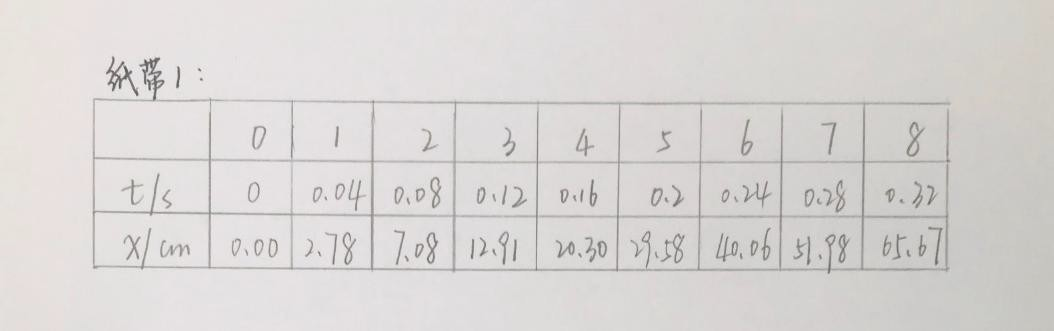 纸带1:
0 1 2 3 4 5 6 7 8
t/s 0 0.04 0.08 0.12 0.16 0.2 0.24 0.28 0.32
X/cm 0.00 2.78 7.08 12.91 20.30 29.58 40.06 51.98 65.67